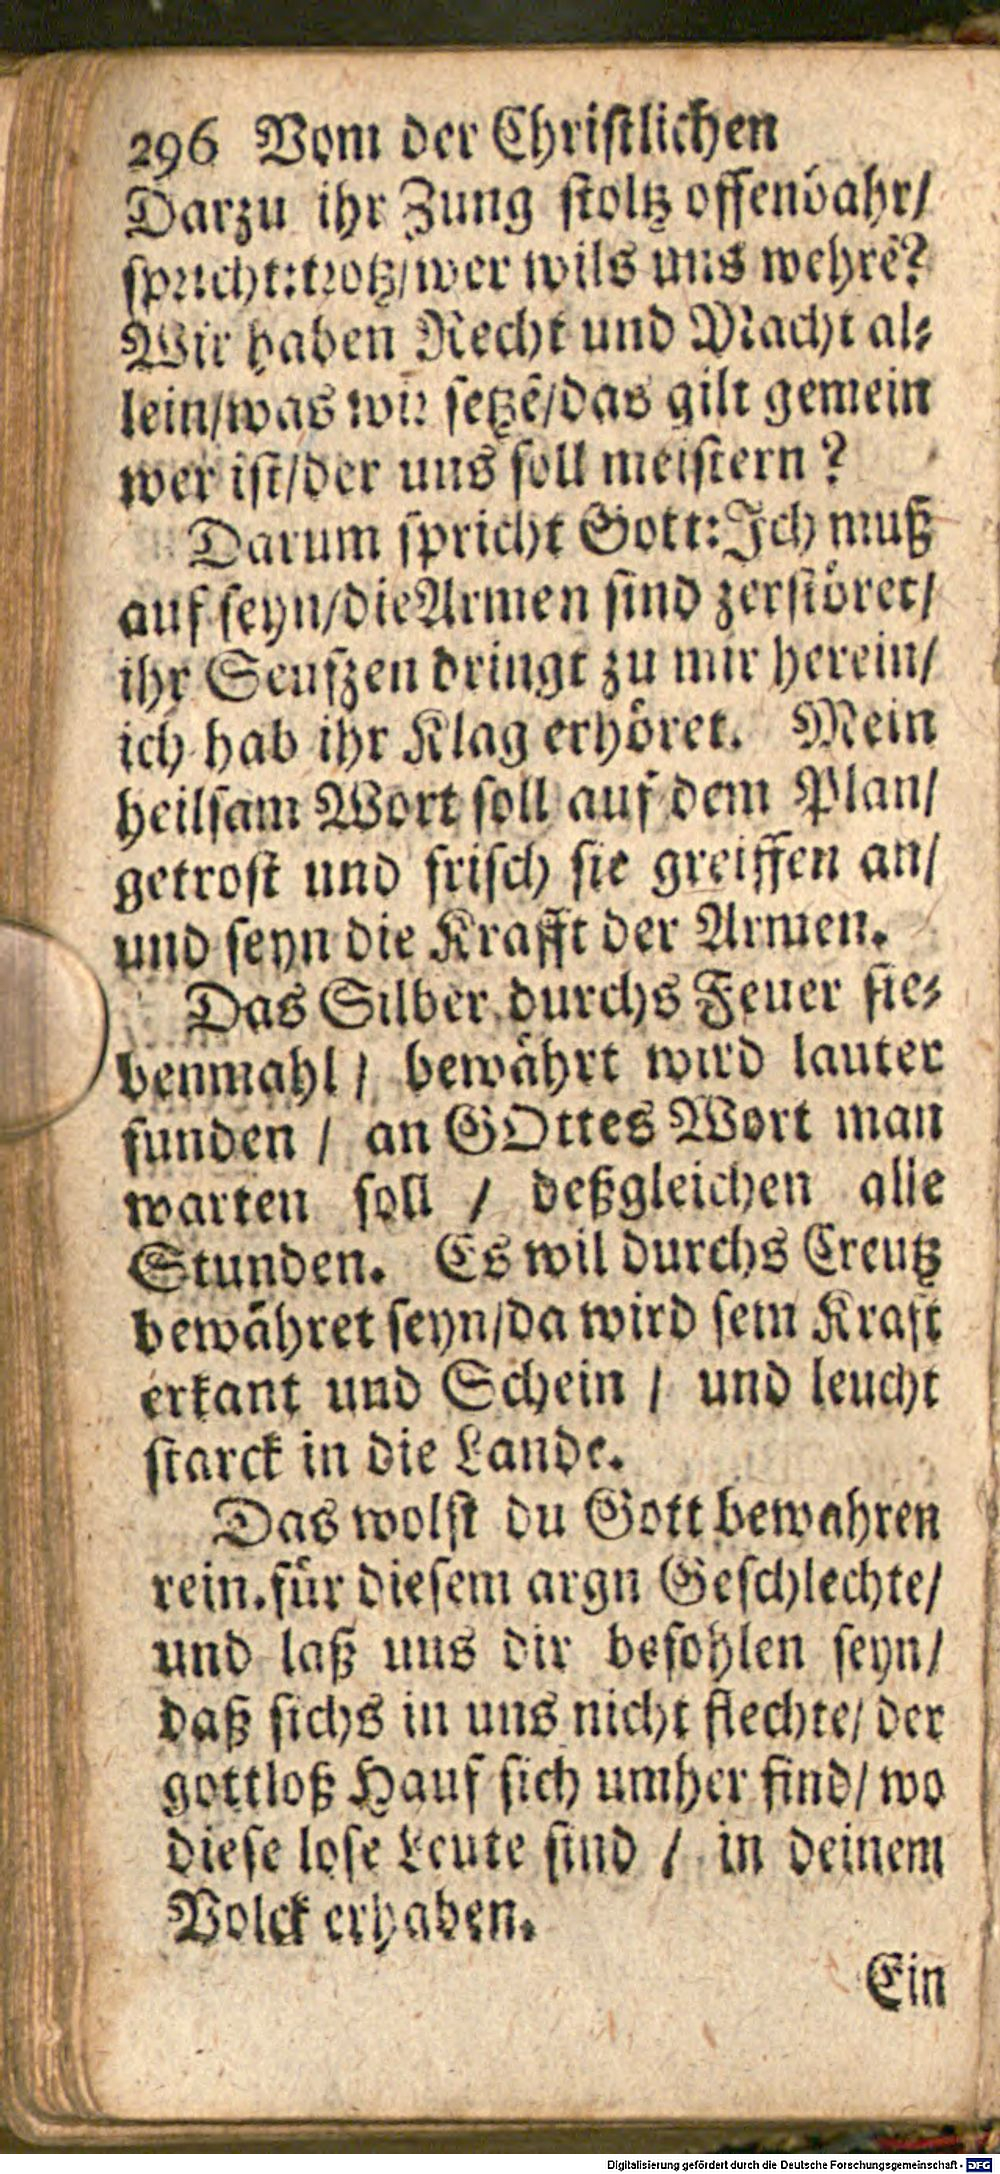 296 Vom der Christlichen
Darzu ihr Zung stoltz offenbahr/
spricht: trotz/wer wils uns wehrẽ?
Wir haben Recht und Macht al⸗
lein/was wir setzẽ/das gilt gemein
wer ist/der uns soll meistern?
Darum spricht Gott: Ich muß
auf seyn/die Armen sind zerstöret/
ihr Seufzen dringt zu mir herein/
ich hab ihr Klag erhöret. Mein
heilsam Wort soll auf dem Plan/
getrost und frisch sie greiffen an/
und seyn die Krafft der Armen.
Das Silber durchs Feuer sie⸗
benmahl / bewährt wird lauter
funden / an GOttes Wort man
warten soll / deßgleichen alle
Stunden. Es wil durchs Creutz
bewähret seyn/da wird sein Kraft
erkant und Schein / und leucht
starck in die Lande.
Das wolst du Gott bewahren
rein.für diesem argn Geschlechte/
und laß uns dir befohlen seyn/
daß sichs in uns nicht flechte/ der
gottloß Hauf sich umher find/ wo
diese lose Leute sind / in deinem
Volck erhaben.
Ein
Digitalisierung gefördert durch die Deutsche Forschungsgemeinschaft - DFG